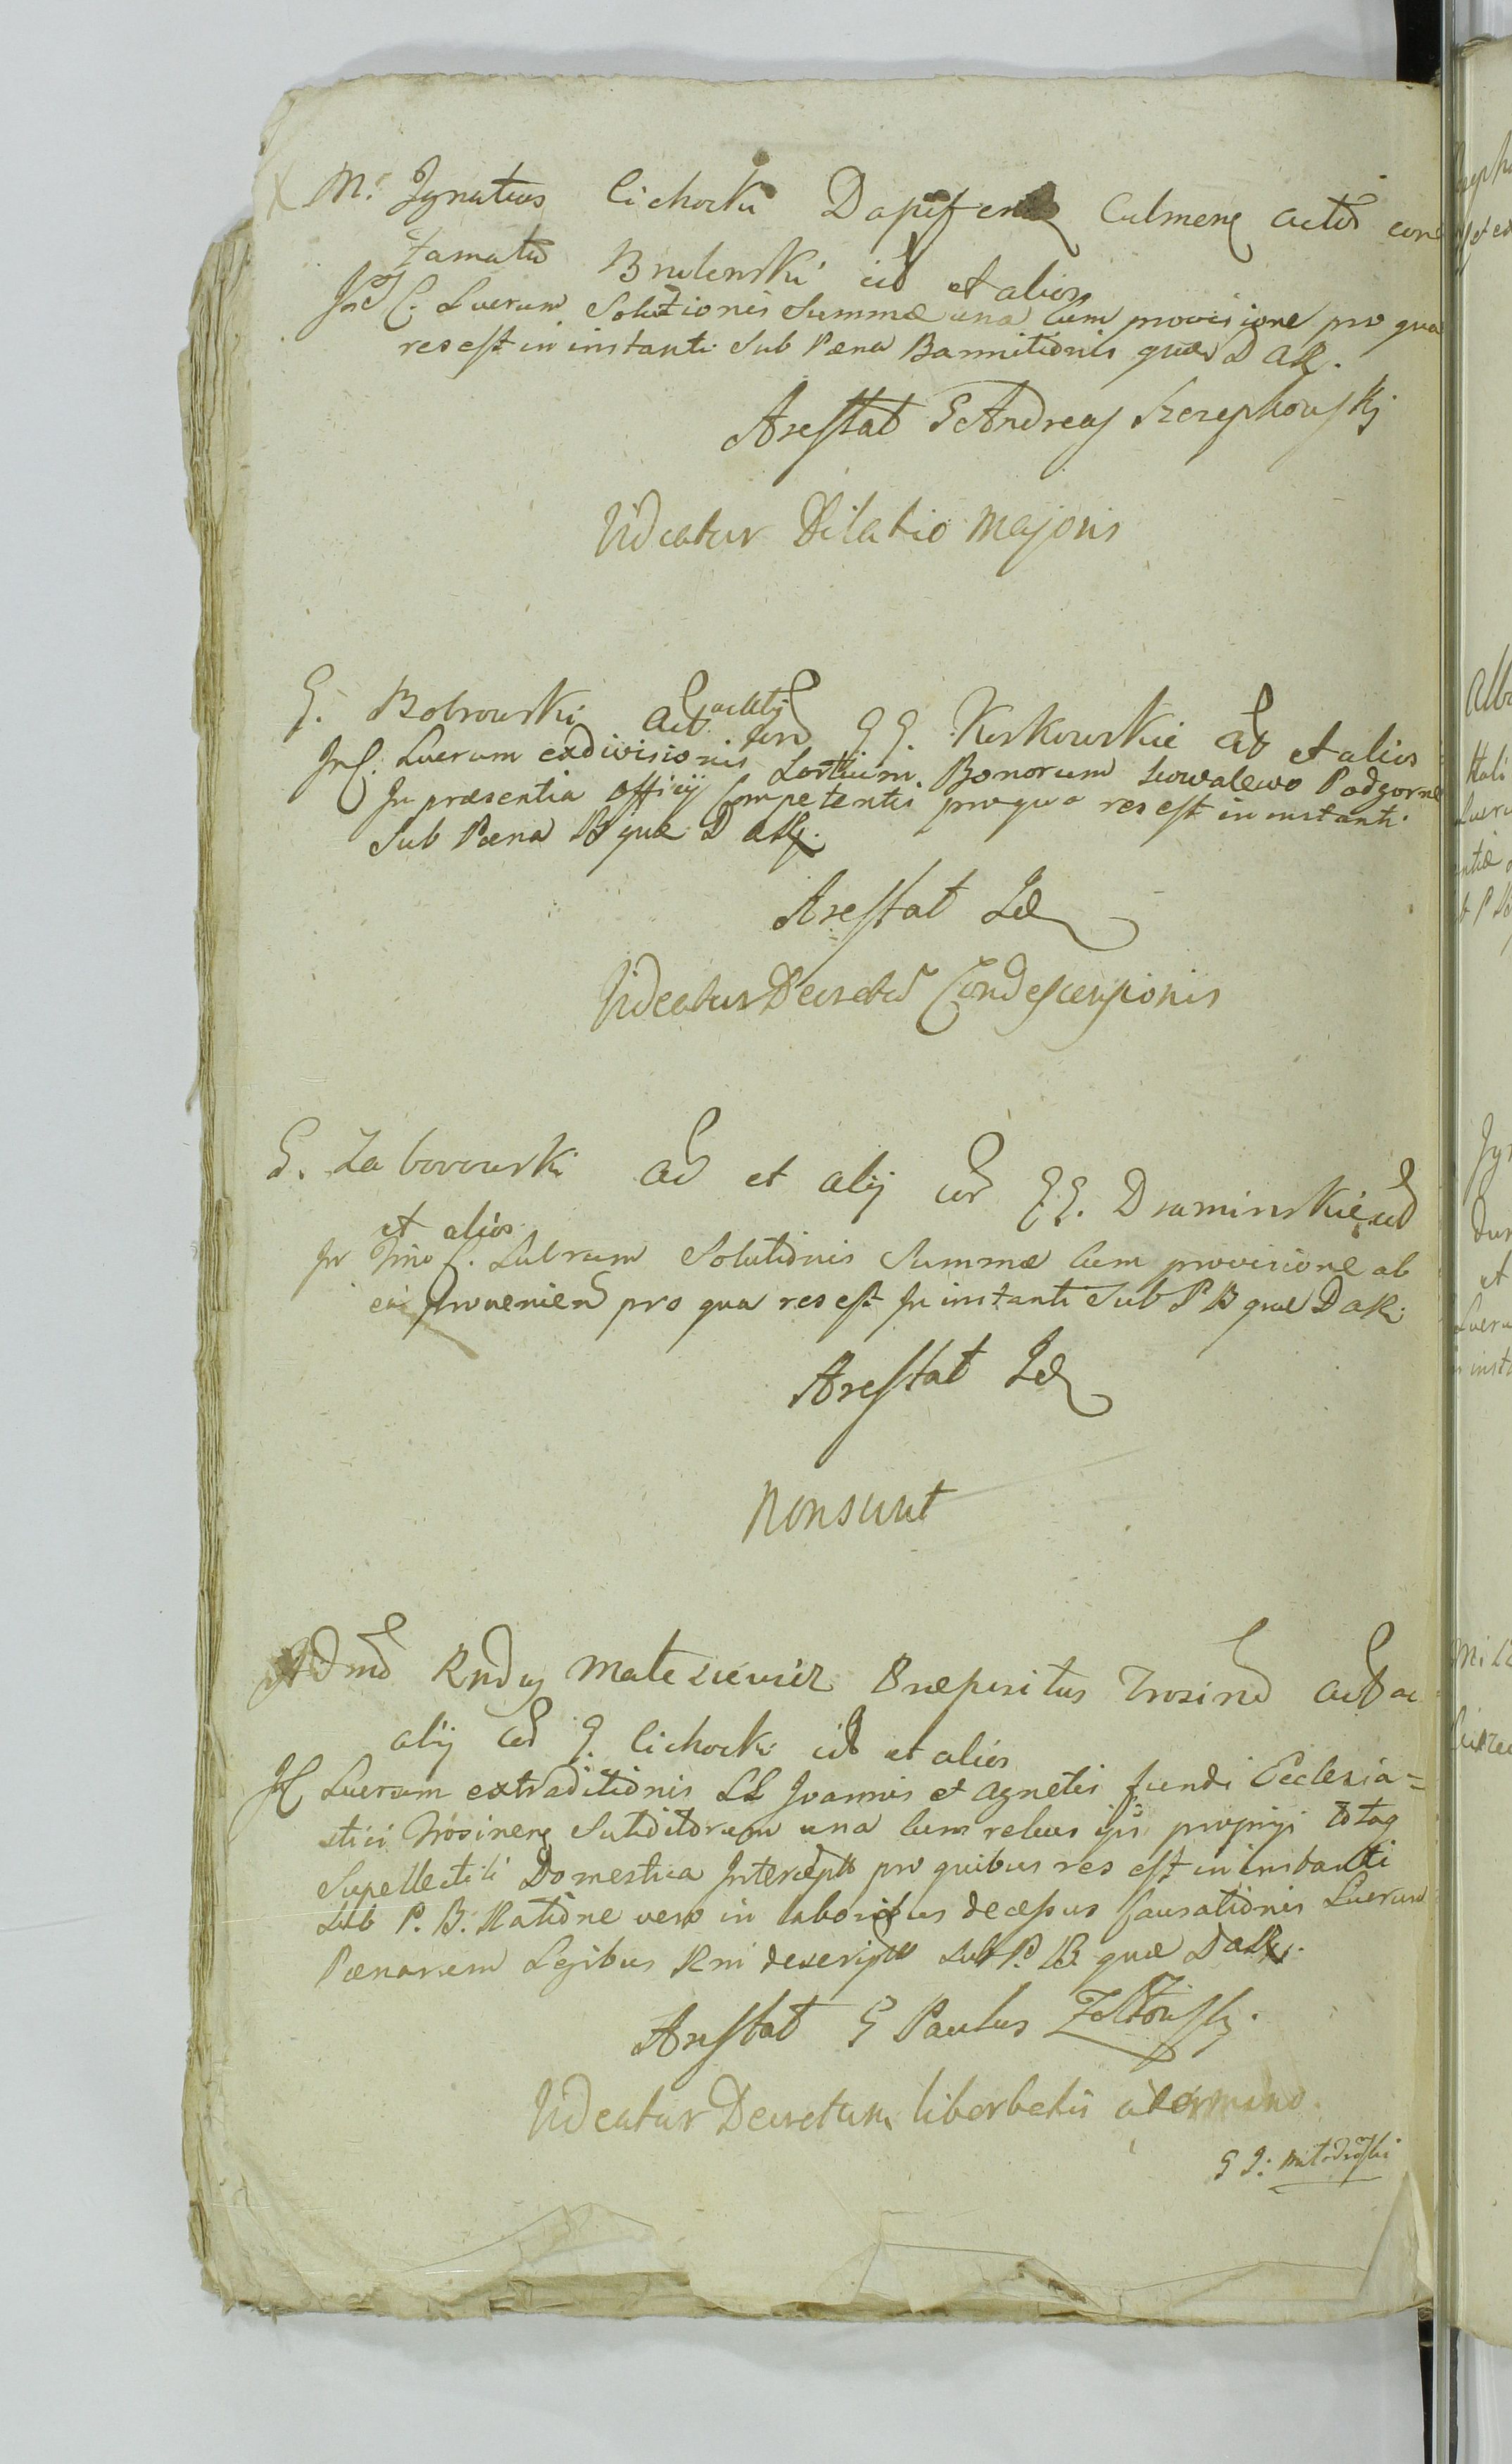 Mr Ignatius Cichocki Dapifer Culmens actor con
Famatum Brulenski cit et alios
In C. Lucrum Solutionis Summæ una cum provisione pro qua
res est in instanti Sub Pæna Bannitionis quæ D ak.
Arestat G Andreas Szczepkowskj
Videatur Dilatio Majoris
G. Bobrowski act actkj con G G. Kuskowskie cit et alios
In C. Lucrum exdivisionis Sortium Bonorum kowalewo Podgorne
In præsentia Officij Competentis pro qua res est in instanti
Sub Pæna B quæ D ak.
Arestat Id
Videatur Decretum Condescensionis
G. Zaborowski act et alij con G G. Draminskie cit
et alios
In Tmino C. Lucrum Solutionis Summæ cum provisione ab
ea provenien pro qua res est In instanti Sub P B quæ D ak.
Arestat Id
Non sunt
Admd Rndus Mateusiewicz Præpositus Trosind act ac
alij con G. Cichocki cit et alios
In C Lucrum extraditionis LL Joannis et Agnetis fundi Ecclesia=
stici Trosinens Subditorum una cum rebus ips propriis totaq
Supellectili Domestica Intercept pro quibus res est in instanti
Sub P. B. Ratione vero in laboribus decessus Causationis Lucrum
Pænarum Legibus Rni descript Sub P. B. quæ D ak.
Arestat G Paulus Zoltowskj.
Videatur Decretum libertatis a termino.
G J: